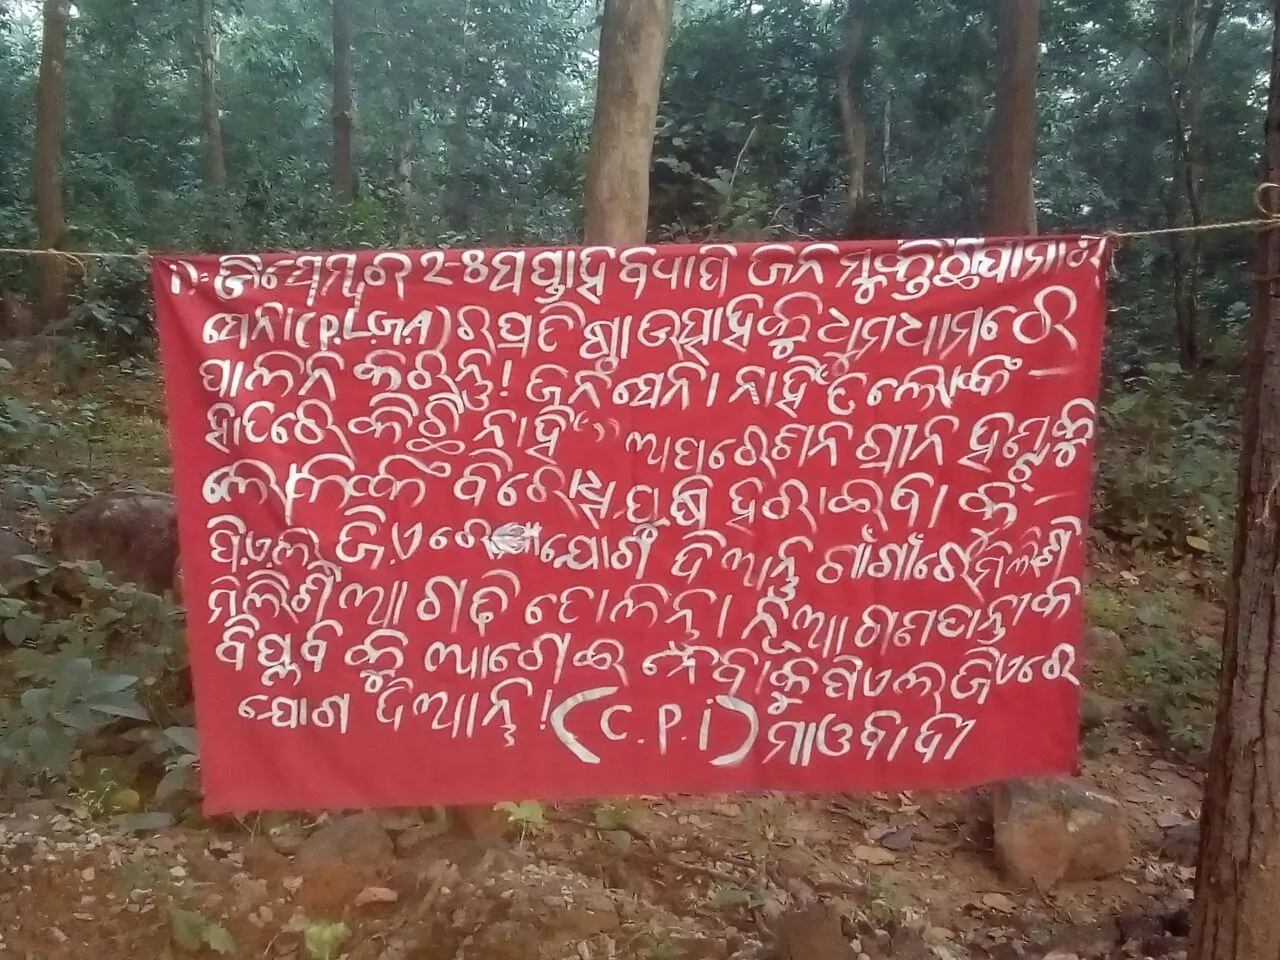 ୧- ଡିସେମ୍ବର ୨-୫ ସପ୍ତାହ ବ୍ୟାପି ଜନ ମୁକ୍ତି ଛାପାମାର
ସେନା (P.L.G.A) ର ପ୍ରତିଷ୍ଠା ଉତ୍ସାହକୁ ଧୁମଧାମରେ
ପାଳନ କରନ୍ତୁ! ଜନସେନା ନାହିଁ ତ ଲୋକଙ୍କ –
ହାତରେ କିଛି ନାହିଁ" ଅପରେଶନ ଗ୍ରୀନ ହଣ୍ଟକୁ
ଲୋକଙ୍କ ବିରୋଧି ଯୁଦ୍ଧ ହରାଇବା କଁ –
ପି.ଏଲ୍.ଜି.ଏ ରେ ଯୋଗ ଦିଅନ୍ତୁ ଗାଁଗାଁରେ ମିଲିଶି
ମିଲିଶି ଆ ଗଢି ତୋଳନ୍ତୁ। ନୂଆ ଗଣତାନ୍ତ୍ରୀକ
ବିପ୍ଳବ କୁ ଆଗେଇ ନେବାକୁ ପିଏଲଜିଏରେ
ଯୋଗ ଦିଅନ୍ତୁ! (C.P.I) ମାଓବାଦୀ